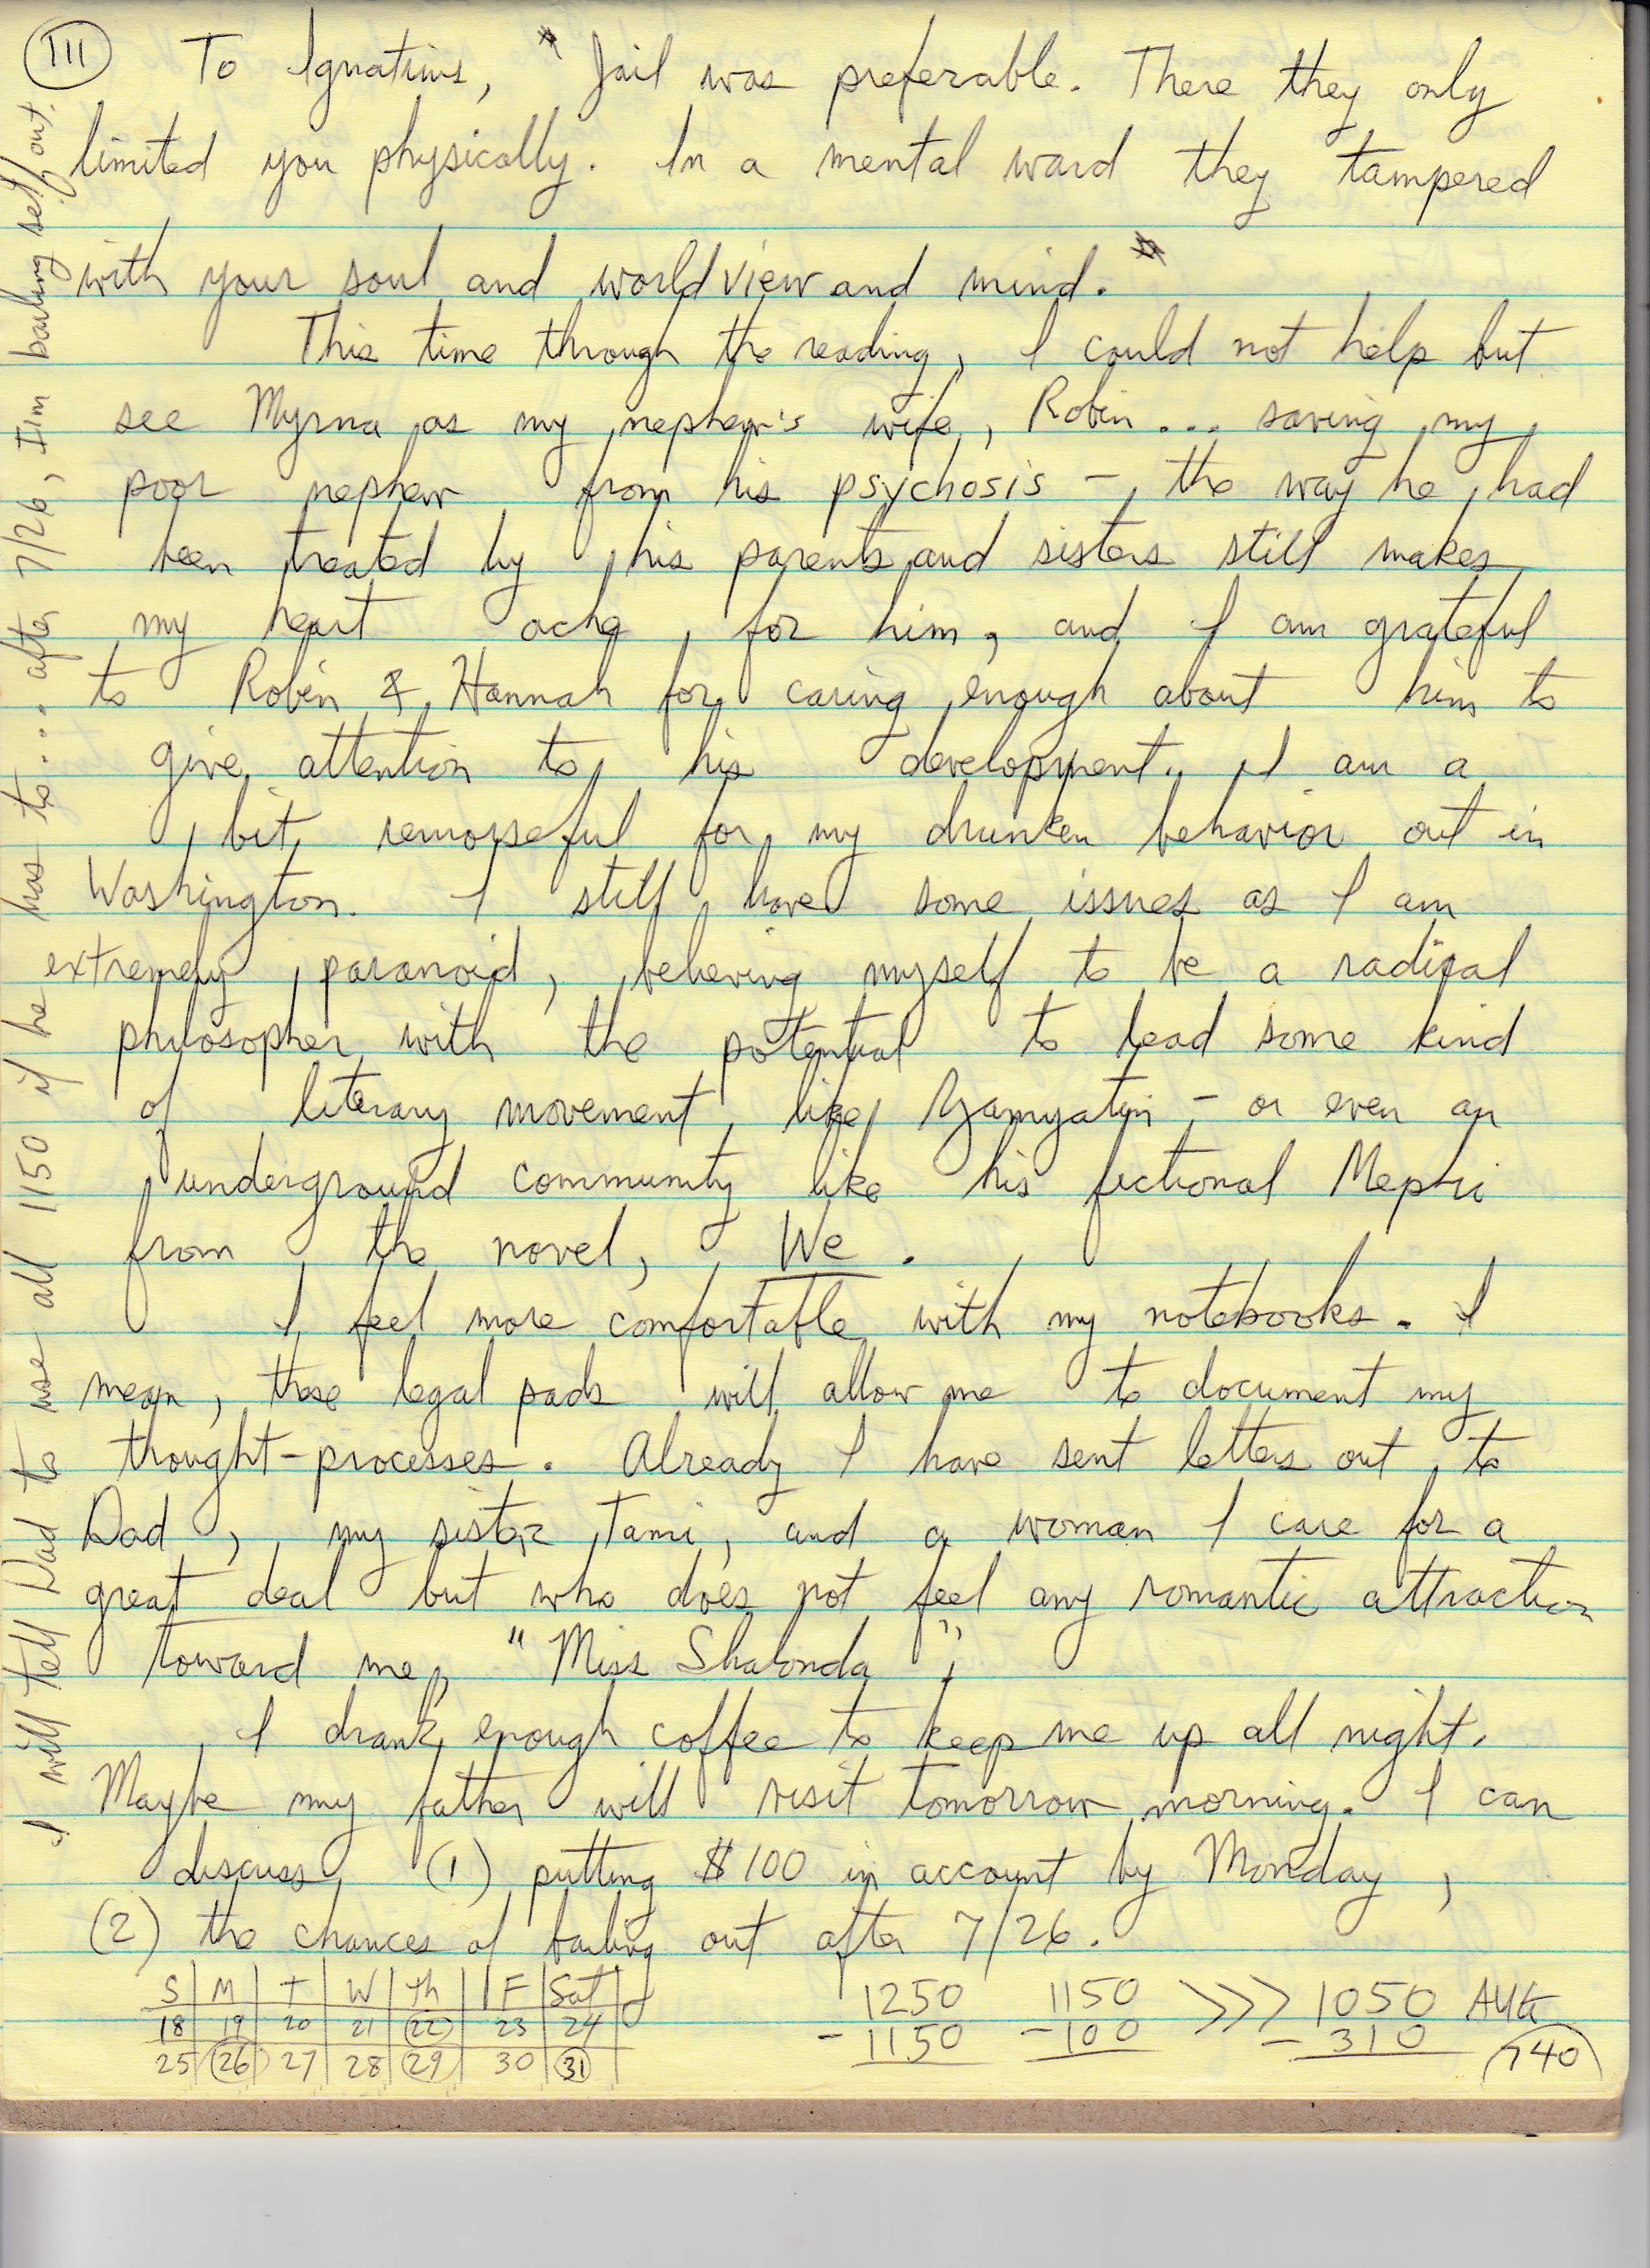 III To Ignatius, "Jail was preferable. There they only
limited you physically. In a mental ward they tampered
with your soul and worldview and mind."
This time through the reading, I could not help but
see Myrna as my nephew's wife, Robin... saving my
poor nephew from his psychosis – the way he had
been treated by his parents and sisters still makes
my heart ache for him, and I am grateful
to Robin & Hannah for caring enough about him to
give attention to his development. I am a
bit remorseful for my drunken behavior out in
Washington. I still have some issues as I am
extremely paranoid, believing myself to be a radical
philosopher with the potential to lead some kind
of literary movement, like Zamyatin – or even an
underground community like his fictional Mephi
from the novel, We.
I feel more comfortable with my notebooks. I
mean, these legal pads will allow me to document my
thought-processes. Already I have sent letters out to
Dad, my sister Tami, and a woman I care for a
great deal but who does not feel any romantic attraction
toward me, "Miss Shalonda";
I drank enough coffee to keep me up all night.
Maybe my father will visit tomorrow morning. I can
discuss (1) putting $100 in account by Monday,
(2) the chances of bailing out after 7/26.
S M T W Th F Sat
18 19 20 21 22 23 24
25 26 27 28 29 30 31
1250 1150 >>> 1050 AUG
- 1150 - 100 - 310 740
I will tell Dad to use all 1150 if he has to... after 7/26, I'm bailing self out.